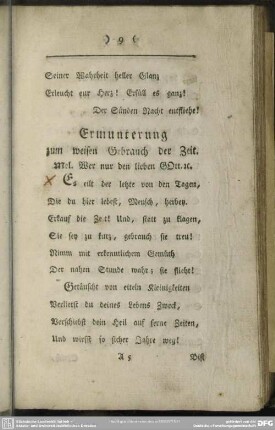 ) 9 (
Seiner Wahrheit heller Glanz
Erleucht eur Herz! Erfüll es ganz!
Der Sünden Nacht entfliehe!
Ermunterung
zum weisen Gebrauch der Zeit.
Mel. Wer nur den lieben GOtt. ꝛc.
Es eilt der letzte von den Tagen,
Die du hier lebest, Mensch, herbey.
Erkauf die Zeit! Und, statt zu klagen,
Sie sey zu kurz, gebrauch sie treu!
Nimm mit erkenntlichem Gemüth
Der nahen Stunde wahr; sie flieht!
Getäuscht von eiteln Kleinigkeiten
Verlierst du deines Lebens Zweck,
Verschiebst dein Heil auf ferne Zeiten,
Und wirfst so sicher Jahre weg!
A 5
Bist
DFG